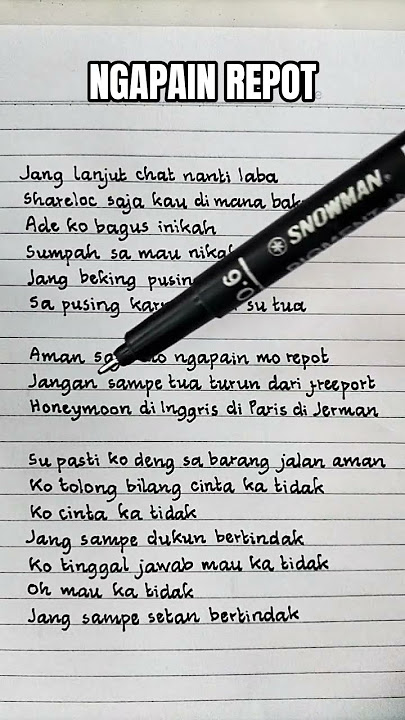 NGAPAIN REPOT
Jang lanjut chat nanti laba
Shareloc saja kau di mana
Ade ko bagus inikah
Sumpah sa mau
Jang beking
Sa pusing su tua
Aman ngapain mo repot
Jangan sampe tua turun dari freeport
Honeymoon di Inggris di Paris di Jerman
Su pasti ko deng sa barang jalan aman
Ko tolong bilang cinta ka tidak
Ko cinta ka tidak
Jang sampe dukun bertindak
Ko tinggal jawab mau ka tidak
Oh mau ka tidak
Jang sampe setan bertindak
SNOWMAN
0.6